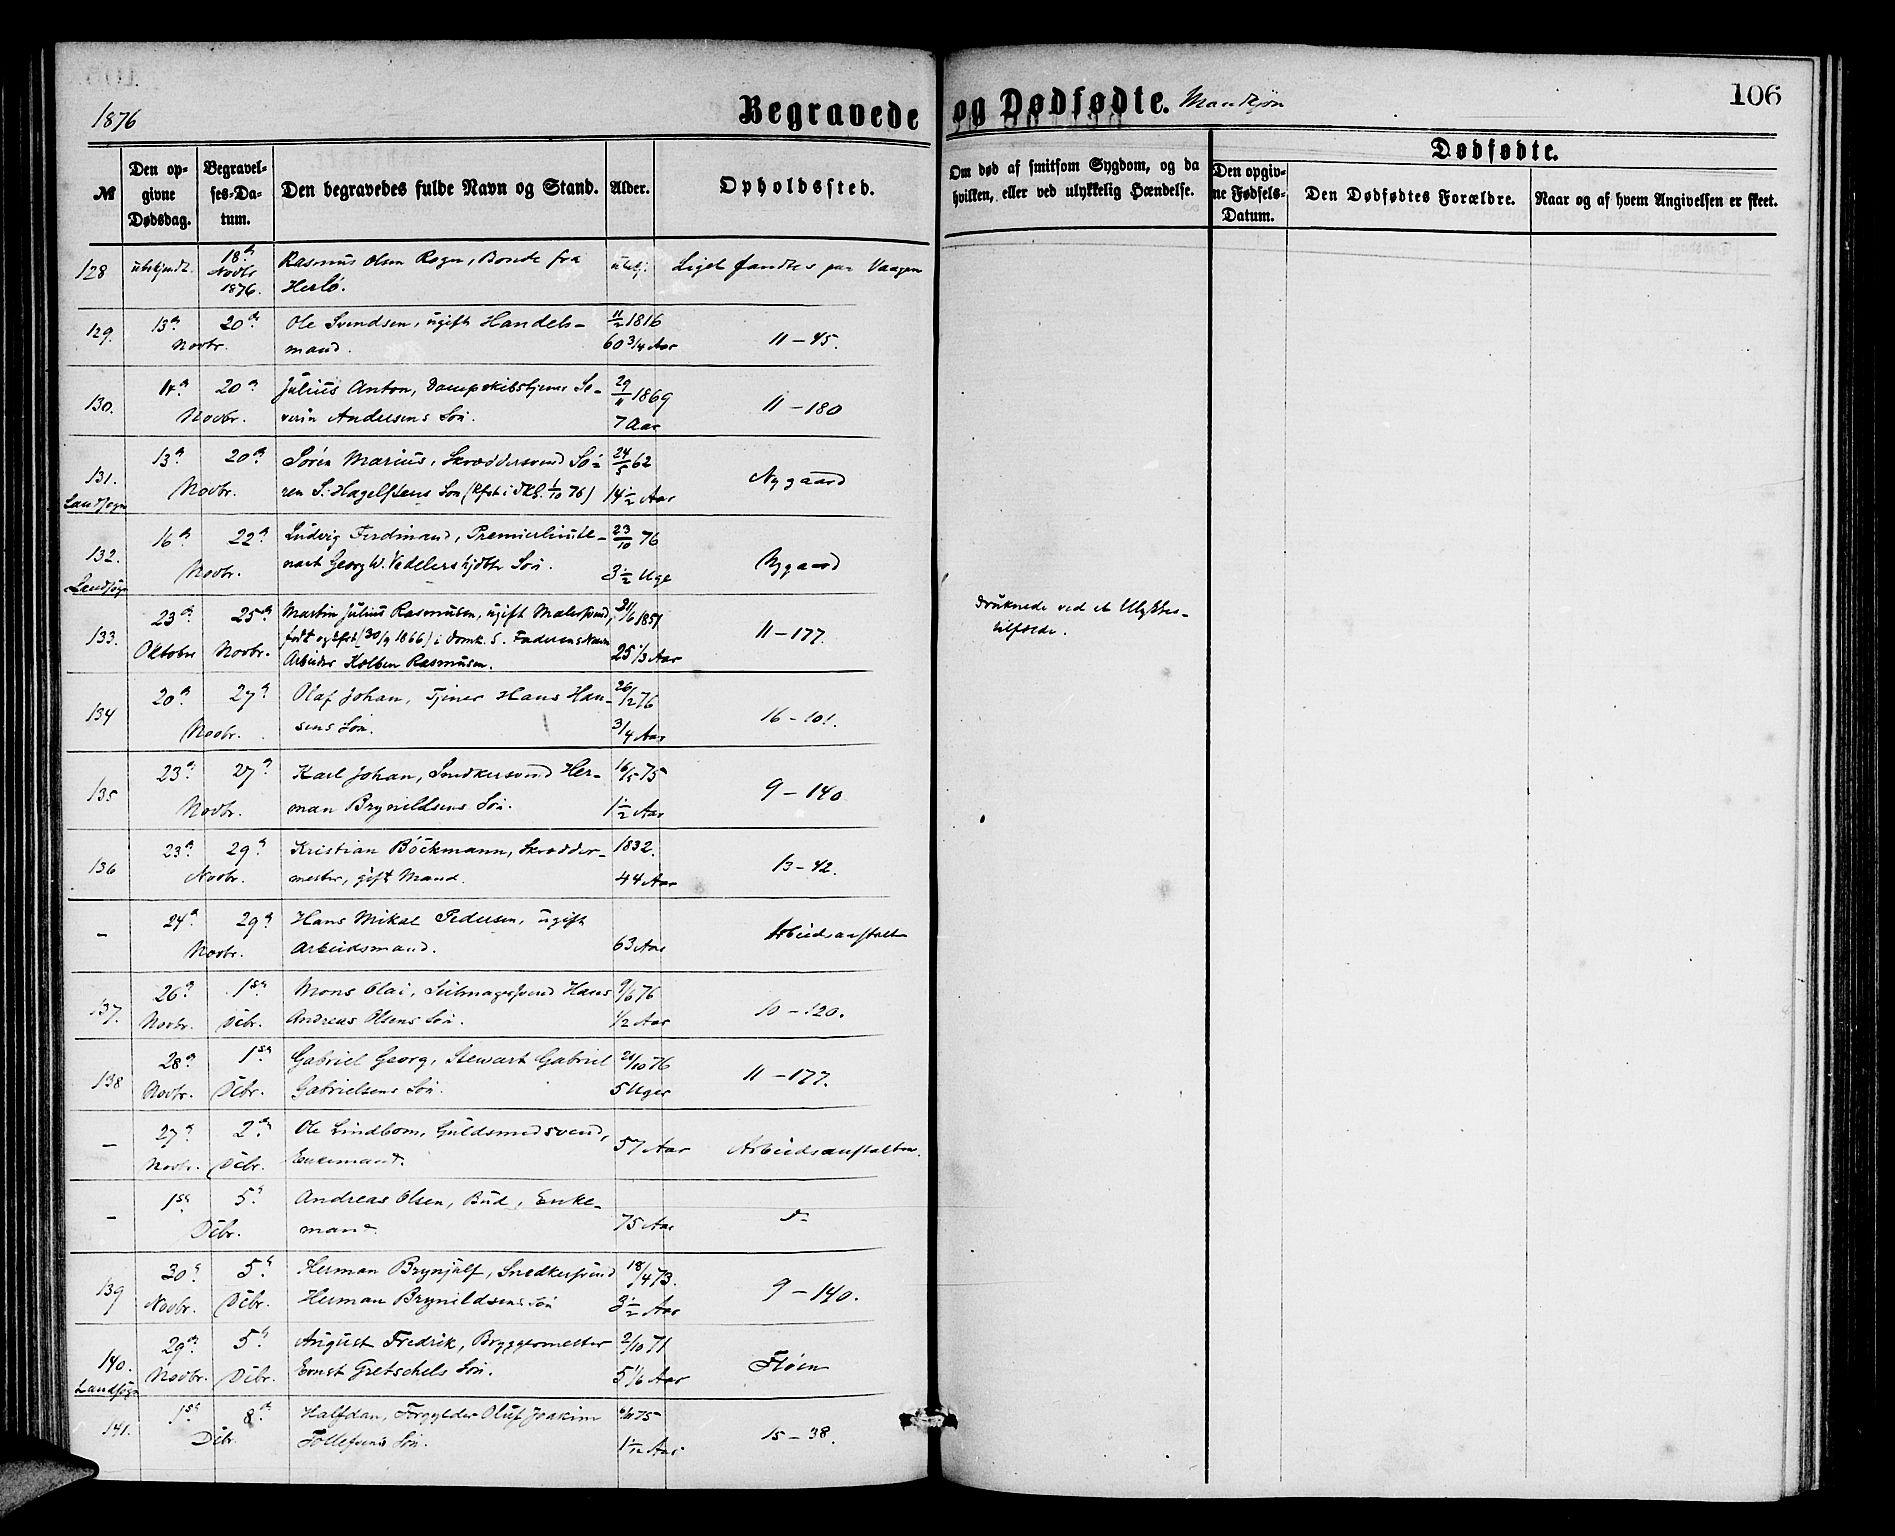 1876
Begravede og Dødfødte. Mandkjøn
106
№
Den opgivne Dødsdag.
Begravelses-Datum.
Den begravedes fulde Navn og Stand.
Alder.
Opholdssted.
Om død af smitsom Sygdom, og da hvilken, eller ved ulykkelig Hændelse.
Dødfødte.
Den opgivne Fødsels-Datum.
Den Dødfødtes Forældre.
Naar og af hvem Angivelsen er skeet.
128 ubekjendt. 18de Novbr 1876. Rasmus Olsen, Bonde fra Herlø. ubekj. Liget fandtes paa Vaagen
129. 13de 20de Novbr. Ole Svendsen, ugift Handelsmand. 11/2 1816 60 3/4 Aar 11 – 45.
130. 14de 20de Novbr. Julius Anton, Dampskibstjener Severin Andersens Søn. 29/11 1869 7 Aar 11 – 180
131. Landsogn 13de 20de Novbr. Søren Marius, Skræddersvend Søren S. Hagelstens Søn 24/5 62 14 1/2 Aar Nygaard
132. Landsogn 16de 22de Novbr. Ludvig Ferdinand, Premierlieutenant Georg W. Vedelers Søn. 23/10 76 3 1/2 Uge Nygaard
133. 23de Oktober 25de Novbr. Martin Julius Rasmussen, ugift Malersvend, født og (30/9 1866) i Domk. S. Faderens Navn Arbeider Kolben Rasmussen. 1851 25 1/3 Aar 11 – 177. Druknede ved et Ulykkestilfælde.
134 20de 27de Novbr. Olaf Johan, Tjener Hans Hansens Søn. 26/2 76 3/4 Aar 16 – 101.
135 23de 27de Novbr. Karl Johan, Snedkersvend Herman Brynildsens Søn. 16/5 75 1 1/2 Aar 9 – 140
136 23de 29de Novbr. Kristian Böckmann, Skræddermester, gift Mand. 1832. 44 Aar 13 – 42.
– 24de 29de Novbr. Hans Mikal Pedersen, ugift Arbeidsmand. 63 Aar Arbeidsanstalten
137. 26de Novbr. 1ste Dcbr. Mons Olai, Seilmagersvend Hans Andreas Olsens Søn. 9/6 76 1/2 Aar 10 – 120.
138 28de Novbr. 1ste Dcbr. Gabriel Georg, Stewart Gabriel Gabrielsens Søn. /10 76 5 Uger 11 – 177.
– 27de Novbr. 2den Dcbr. Ole Lindbom, Guldsmedsvend, Enkemand. 57 Aar Arbeidsanstalten.
– 1ste 5te Dcbr. Andreas Olsen, Bud, Enkemand. 75 Aar do
139 30te Novbr. 5te Dcbr. Herman Brynjulf, Snedkersvend Herman Brynildsens Søn 18/4 73. 3 1/2 Aar 9 – 140.
140. Landsogn 29de Novbr. 5te Dcbr. August Fredrik, Bryggermester Ernst Gretschels Søn. 2/10 71 5 1/6 Aar Fløen
141. 1ste 8de Dcbr. Halfdan, Forgylder Oluf Joakim Tollefsens Søn. 75 1 1/12 Aar 15 – 38.